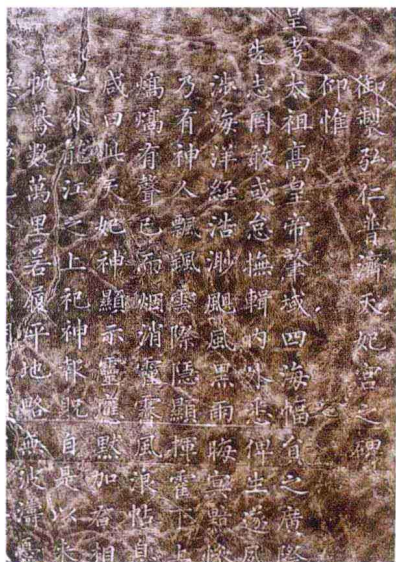 御製弘仁普濟天妃宮之碑
仰惟
皇考太祖高皇帝肇域四海幅員之廣際
先志罔敢或怠撫輯內外悉俾生遂夙
涉海洋經浩渺颶風黑雨晦冥黯慘
乃有神人飄飄雲際隱顯揮霍下上
熇熇有聲已而烟消霾霽風浪帖息
咸曰此天妃神顯示靈應默加佑相
之外龍江之上祀神報貺自是以來
帆驀數萬里若履平地略無波濤